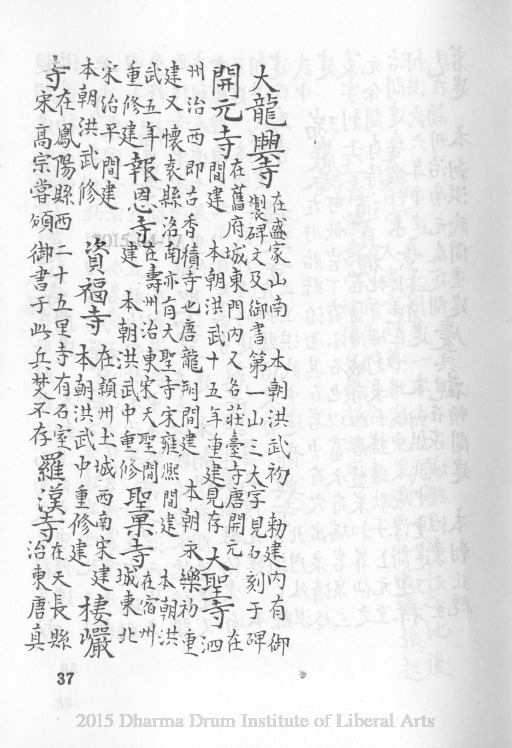 大龍興寺在盛家山南 本朝洪武初 勅建内有御製碑文及御書第一山三大字見石刻于碑
開元寺在舊府城東門内又名莊臺寺唐開元間建 本朝洪武十五年重建見存大聖寺在泗
州治西即古香積寺也唐龍朔間建 本朝永樂初重建又懷袁縣洛南亦有大聖寺宋雍熙間建 本朝洪
武五年重修建報恩寺在壽州治東宋天聖間建 本朝洪武中重修聖果寺在宿州城東北
宋治平間建本朝洪武修資福寺在潁州土城西南宋建 本朝洪武中重修建棲嚴
寺在鳳陽縣西二十五里寺有石室宋高宗嘗頒御書于此兵焚不存羅漢寺在天長縣治東唐真
37
2015 Dharma Drum Institute of Liberal Arts